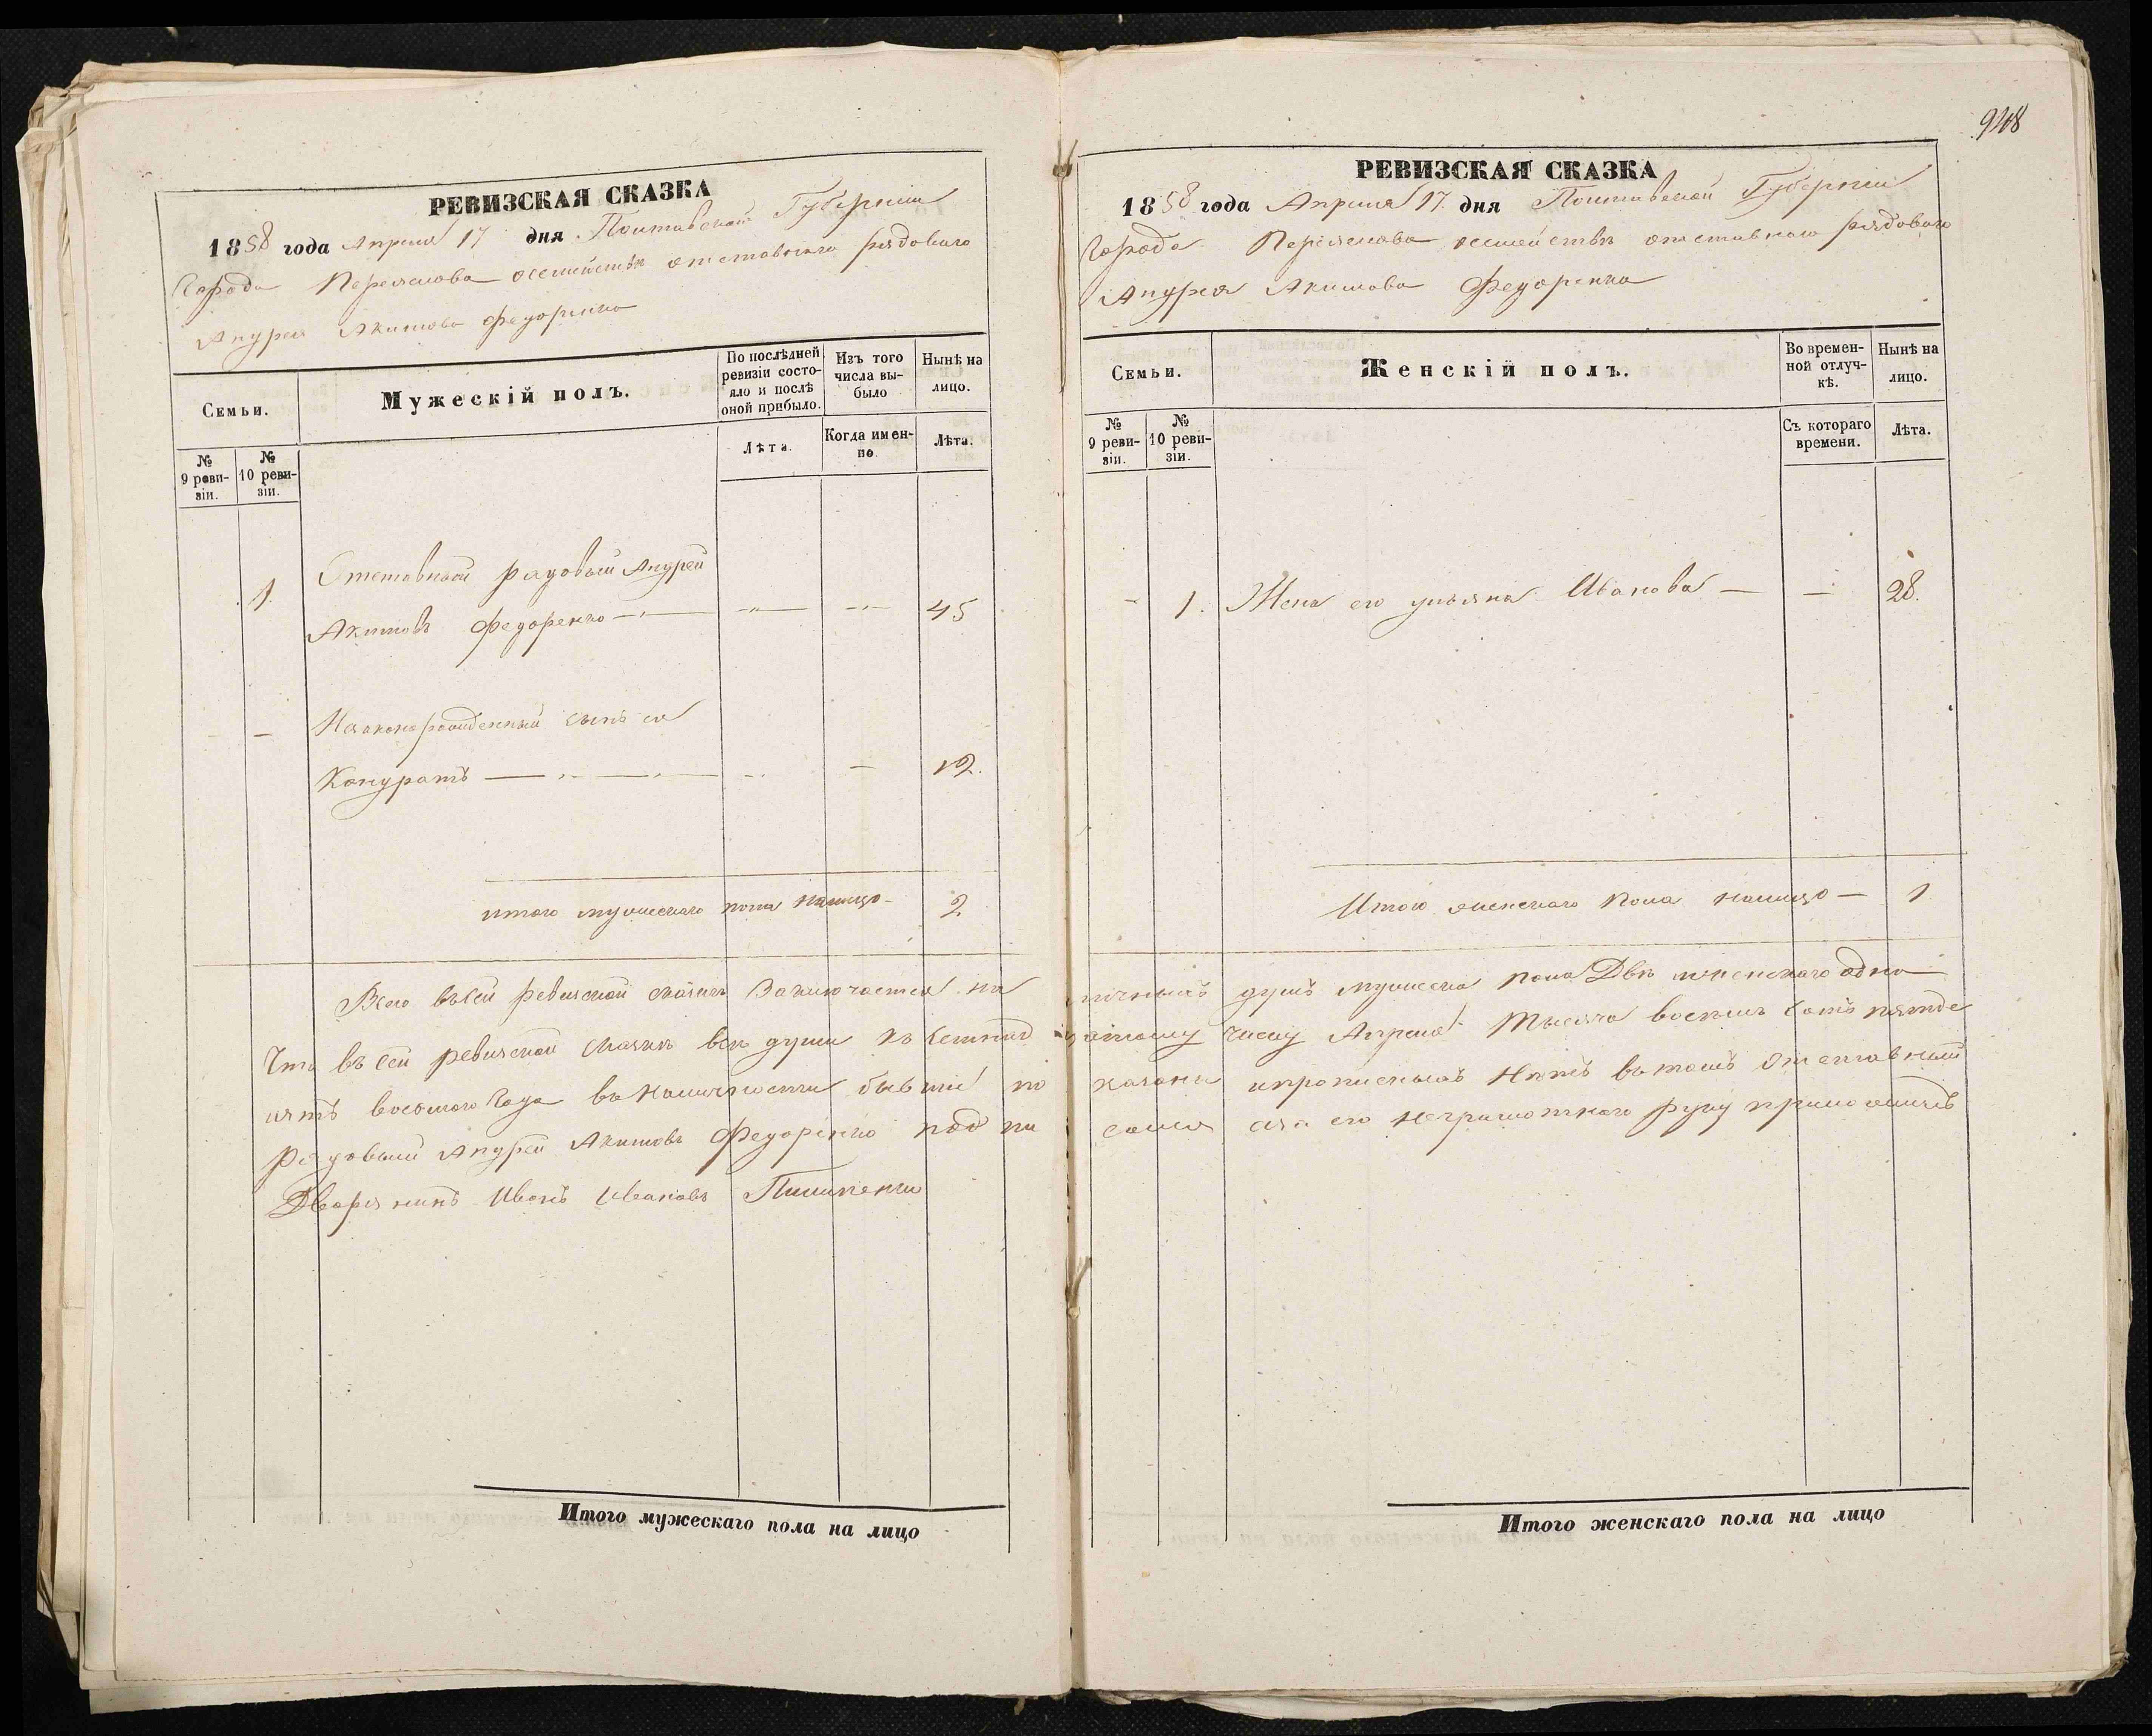 РЕВИЗСКАЯ СКАЗКА
1858 года Апреля 17 дня Полтавской Губерніи
Города Переяслова осемействѣ отставного рядового
Андрея Акимова Федоренка
Семьи.
Мужескій полъ.
По послѣдней ревизіи состояло и послѣ оной прибыло.
Изъ того числа выбыло
Нынѣ на лицо.
№ 9 ревизіи.
№ 10 ревизіи.
Лѣта.
Когда именно
Лѣта.
1. Отставной рядовый Андрей
Акимовъ Федоренко — — — 45
— — Незаконорожденный сынъ его
Кондратъ — — — 12.
итого мужескаго пола налицо — 2
Всего въ сей ревизской сказкѣ Заключается на
Что въ сей ревизской сказкѣ всѣ души къ
ятъ восьмого Года въ наличности бывшіе по
Рядовый Андрей Акимовъ Федоренко подпи
Дворянинъ Иванъ Ивановъ
Итого мужескаго пола на лицо
948
РЕВИЗСКАЯ СКАЗКА
1858 года Апреля 17. дня Полтавской Губерніи
Города Переяслова осемействѣ отставного рядового
Андрея Акимова Федоренка
Семьи.
Женскій полъ.
Во временной отлучкѣ.
Нынѣ на лицо.
№ 9 ревизіи.
№ 10 ревизіи.
Съ котораго времени.
Лѣта.
— 1. Жена его ульяна Иванова — — 28.
Итого женскаго пола налицо — 1
личныхъ душъ мужеска пола Двѣ женскаго одна
числу Апреля Тысяча восемь сотъ пятде
казаны ипрописныхъ Нѣтъ въ томъ отставный
сался аза его неграмотнаго руку приложилъ
Итого женскаго пола на лицо